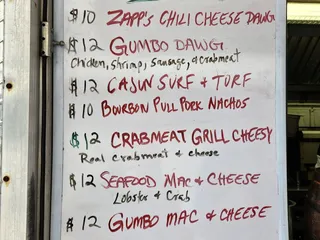 $10 ZAPP'S CHILI CHEESE DAWG
$12 GUMBO DAWG
Chicken, shrimp, sausage, & crabmeat
$12 CAJUN SURF & TURF
$10 BOURBON PULL PORK NACHOS
$12 CRABMEAT GRILL CHEESY
Real crabmeat & cheese
$12 SEAFOOD MAC & CHEESE
Lobster & Crab
$12 GUMBO MAC & CHEESE